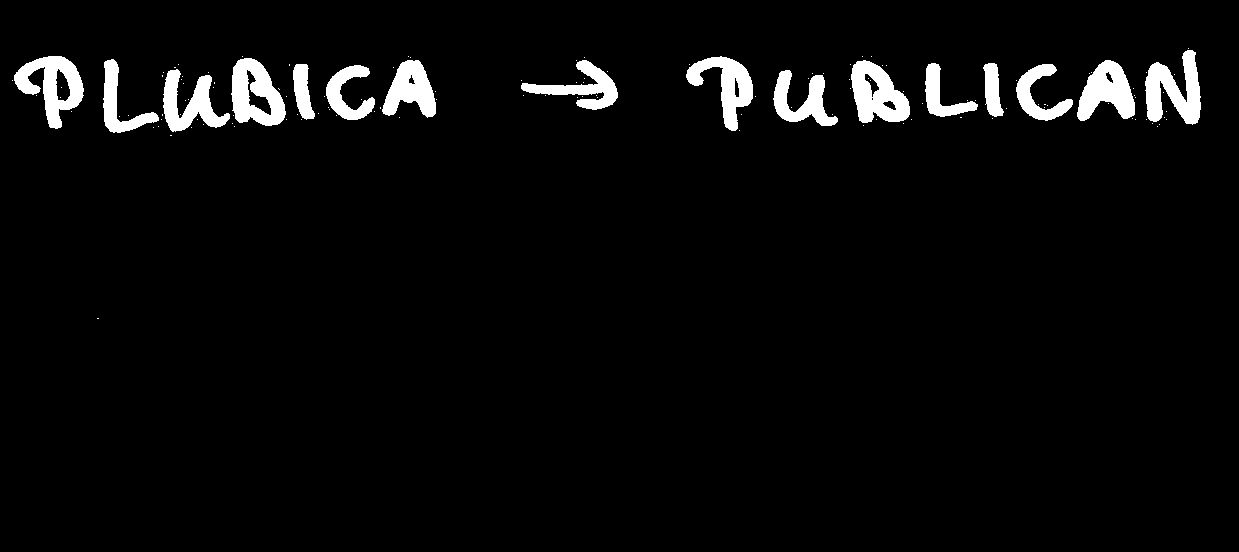 PLUBICA → PUBLICAN